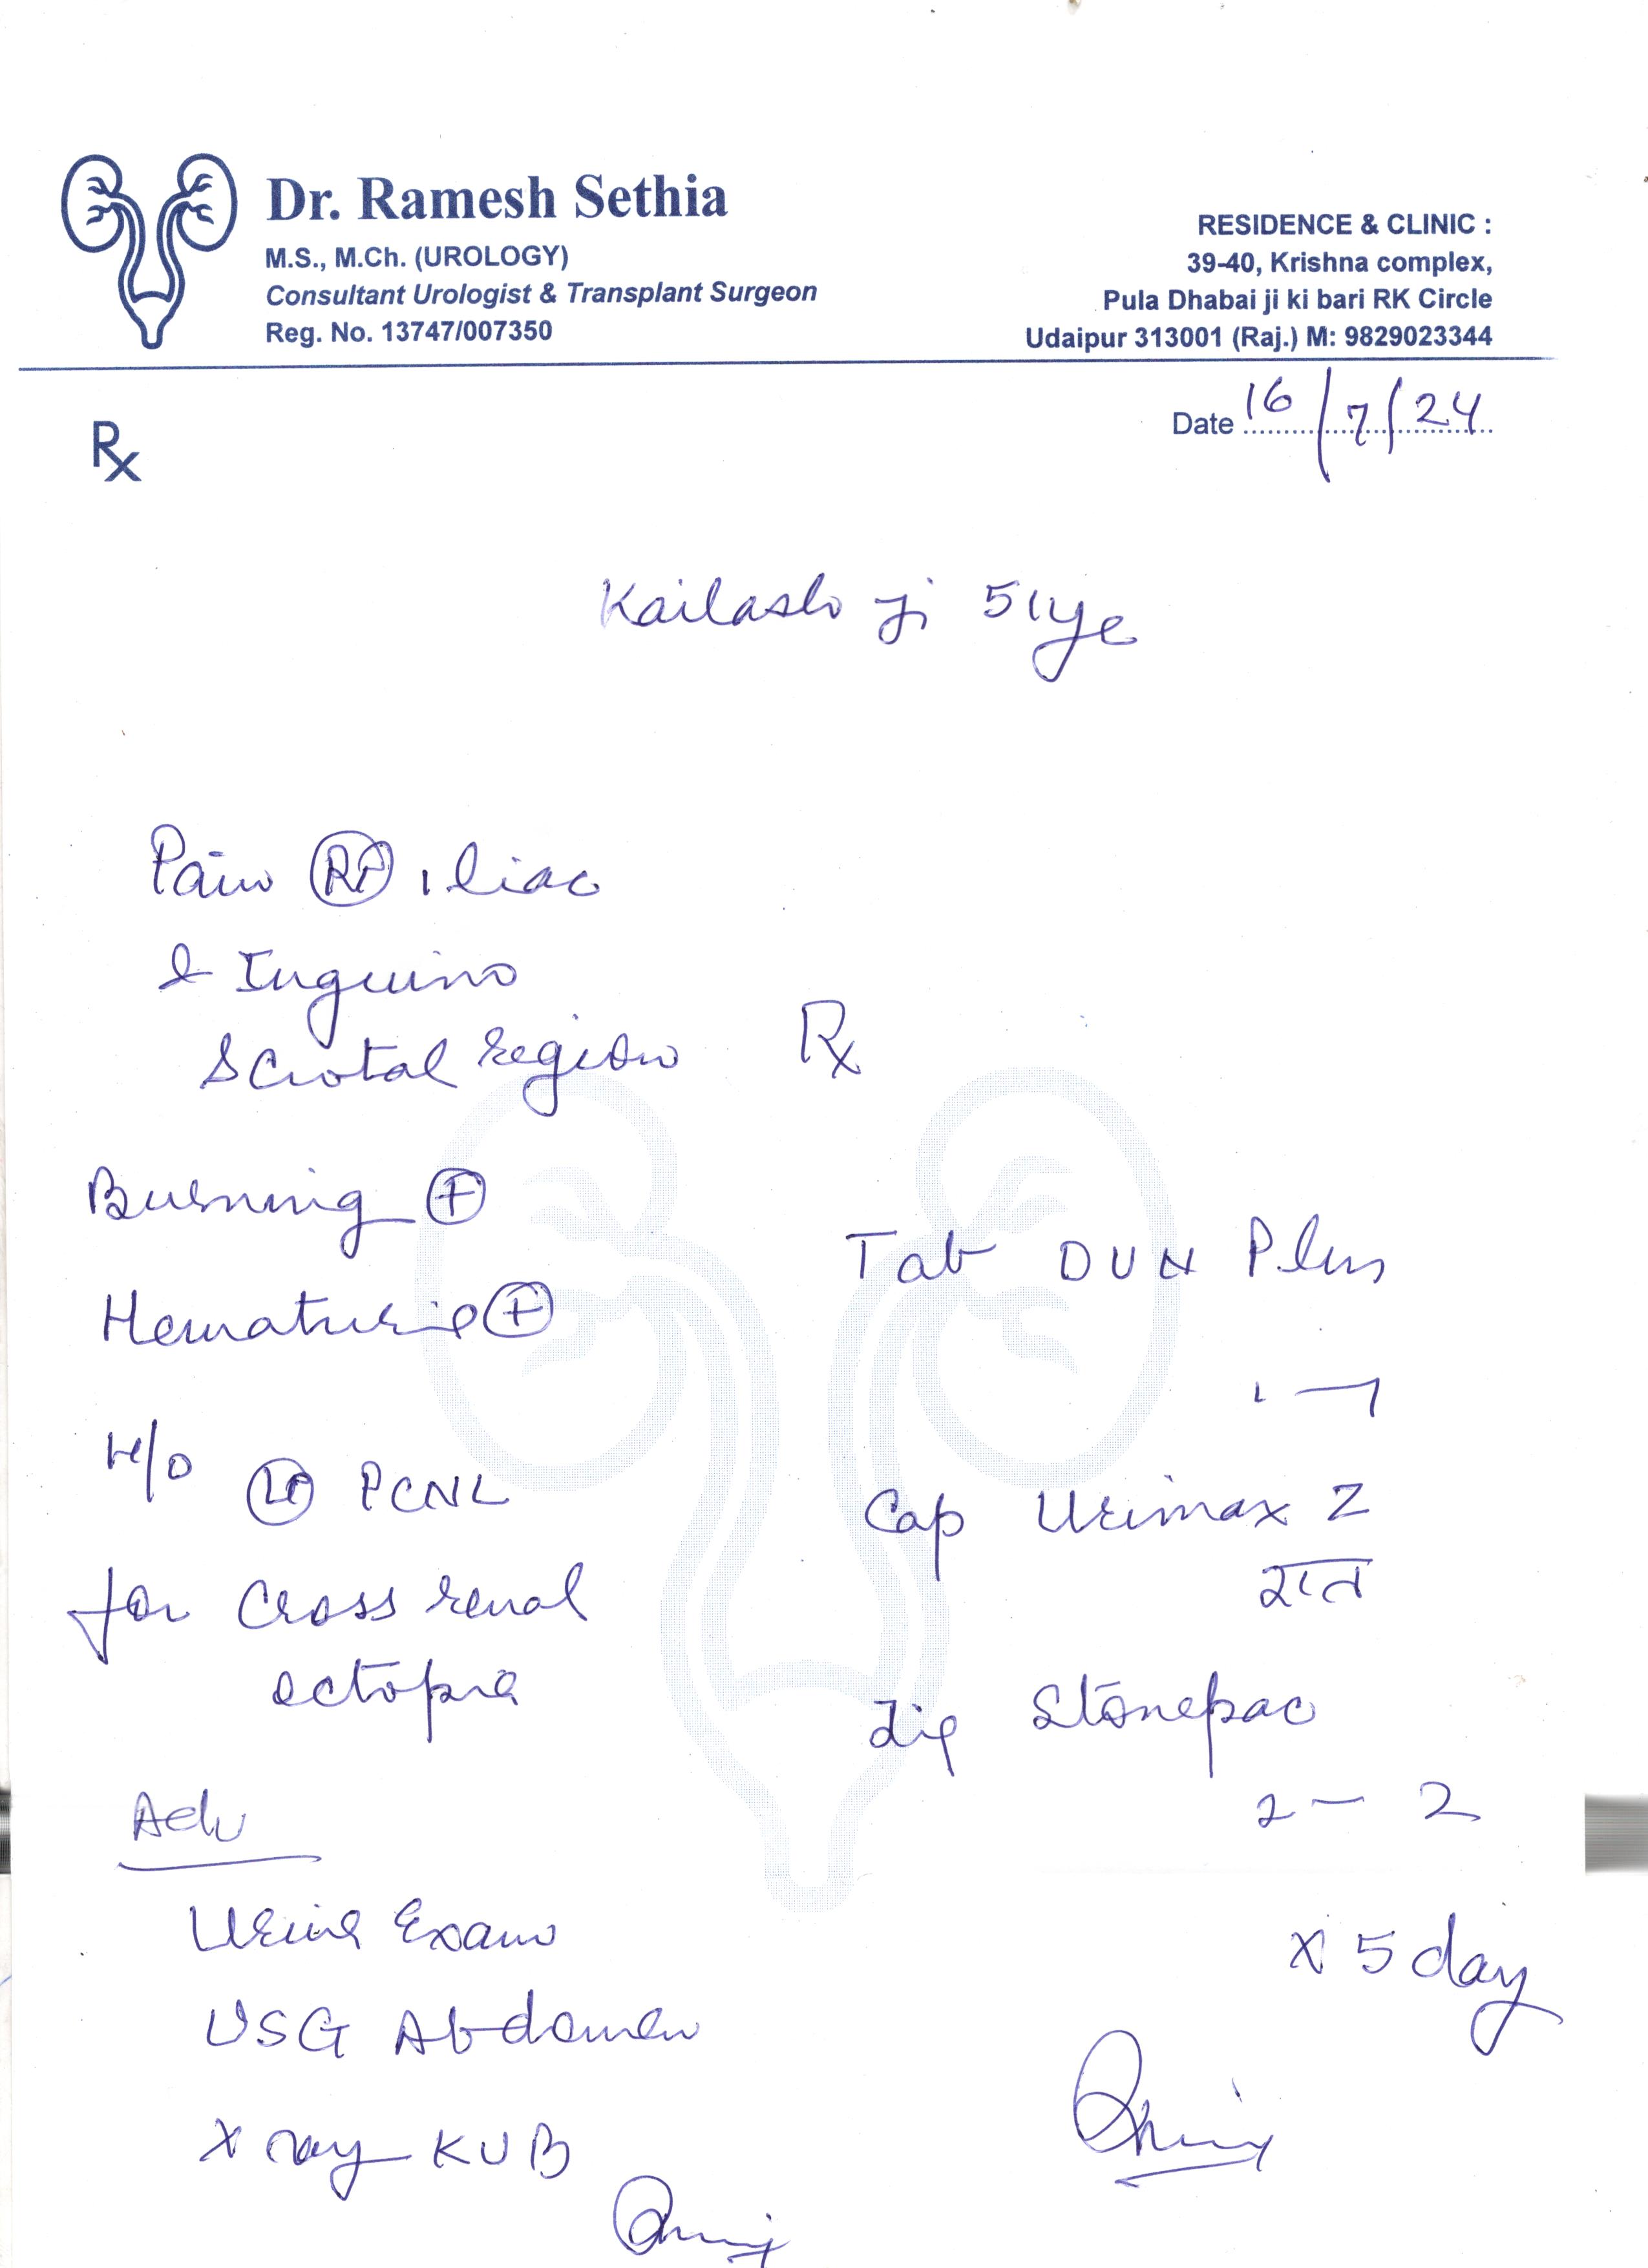 Dr. Ramesh Sethia
M.S., M.Ch. (UROLOGY)
Consultant Urologist & Transplant Surgeon
Reg. No. 13747/007350
RESIDENCE & CLINIC :
39-40, Krishna complex,
Pula Dhabai ji ki bari RK Circle
Udaipur 313001 (Raj.) M: 9829023344
Date 16/7/24
Rx
Kailash ji 51ye
Pain Rt iliac
& Inguino
Scrotal region
Burning +
Hematuria +
H/O Lt PCNL
for Cross renal
ectopia
Adv
Urine Exam
USG Abdomen
X ray KUB
Rx
Tab DUN Plus
1 — 1
Cap Urimax Z
रात
Stonepac
2 — 2
x 5 day